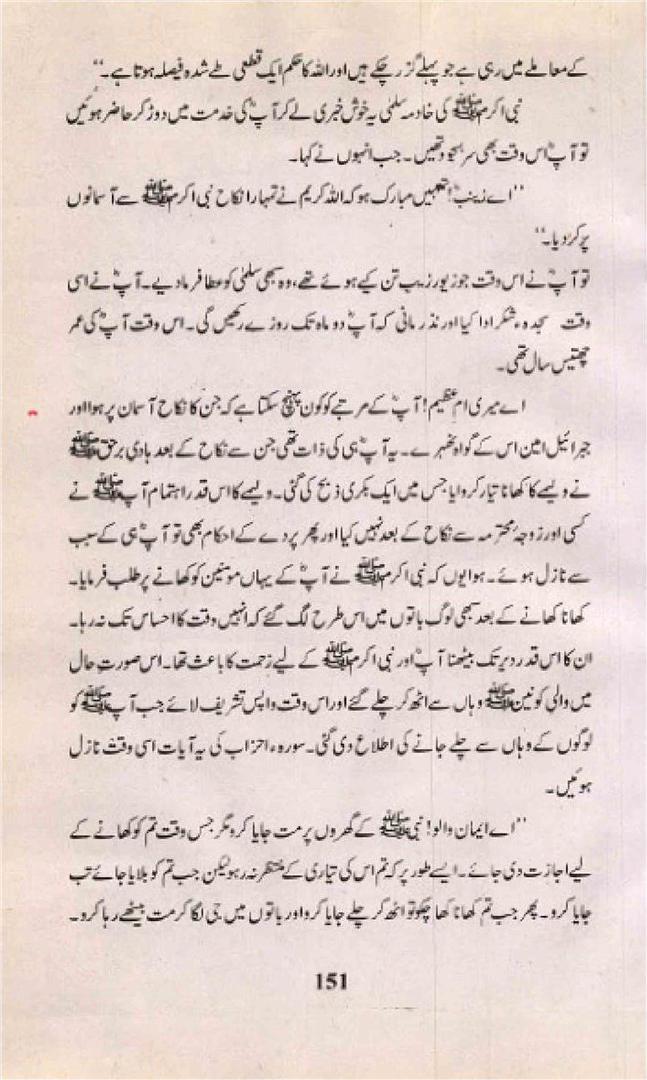 کے معاملے میں رہی ہے جو پہلے گزر چکے ہیں اور اللہ کا حکم ایک قطعی طے شدہ فیصلہ ہوتا ہے۔‘‘
نبی اکرم ﷺ کی خادمہ سلمیٰ یہ خوش خبری لے کر آپؓ کی خدمت میں دوڑ کر حاضر ہوئیں
تو آپؓ اس وقت بھی سر بسجود تھیں۔ جب انہوں نے کہا۔
’’اے زینبؓ! تمہیں مبارک ہو کہ اللہ کریم نے تمہارا نکاح نبی اکرم ﷺ سے آسمانوں
پر کر دیا۔‘‘
تو آپؓ نے اس وقت جو زیور زیب تن کیے ہوئے تھے، وہ سبھی سلمیٰ کو عطا فرما دیے۔ آپؓ نے اسی
وقت سجدہء شکر ادا کیا اور نذر مانی کہ آپؓ دو ماہ تک روزے رکھیں گی۔ اس وقت آپؓ کی عمر
چھتیس سال تھی۔
اے میری ام عظیم! آپؓ کے مرتبے کو کون پہنچ سکتا ہے کہ جن کا نکاح آسمان پر ہوا اور
جبرائیل امین اس کے گواہ ٹھہرے۔ یہ آپؓ ہی کی ذات تھی جن سے نکاح کے بعد ہادی برحق ﷺ
نے ولیمے کا کھانا تیار کروایا جس میں ایک بکری ذبح کی گئی۔ ولیمے کا اس قدر اہتمام آپ ﷺ نے
کسی اور زوجۂ محترمہ سے نکاح کے بعد نہیں کیا اور پھر پردے کے احکام بھی تو آپؓ ہی کے سبب
سے نازل ہوئے۔ ہوا یوں کہ نبی اکرم ﷺ نے آپؓ کے یہاں مومنین کو کھانے پر طلب فرمایا۔
کھانا کھانے کے بعد سبھی لوگ باتوں میں اس طرح لگ گئے کہ انہیں وقت کا احساس تک نہ رہا۔
ان کا اس قدر دیر تک بیٹھنا آپؓ اور نبی اکرم ﷺ کے لیے زحمت کا باعث تھا۔ اس صورتِ حال
میں والی کونین ﷺ وہاں سے اٹھ کر چلے گئے اور اس وقت واپس تشریف لائے جب آپ ﷺ کو
لوگوں کے وہاں سے چلے جانے کی اطلاع دی گئی۔ سورہء احزاب کی یہ آیات اسی وقت نازل
ہوئیں۔
’’اے ایمان والو! نبی ﷺ کے گھروں پر مت جایا کرو مگر جس وقت تم کو کھانے کے
لیے اجازت دی جائے۔ ایسے طور پر کہ تم اس کی تیاری کے منتظر نہ رہو لیکن جب تم کو بلایا جائے تب
جایا کرو۔ پھر جب تم کھانا کھا چکو تو اٹھ کر چلے جایا کرو اور باتوں میں جی لگا کر مت بیٹھے رہا کرو۔
151